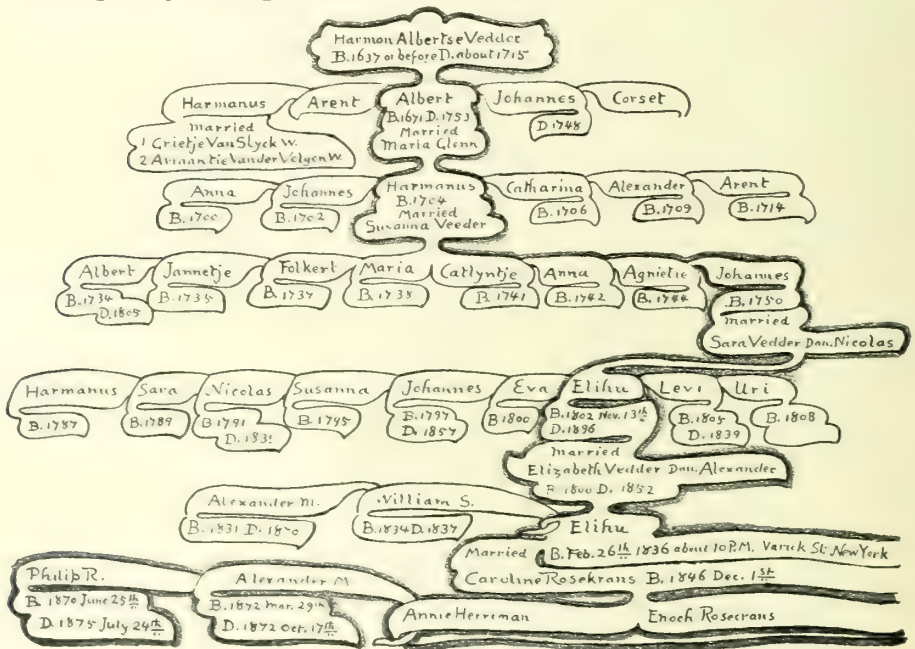 Harmon Albertse Vedder
B. 1637 or before D. about 1715
Harmanus
married
1 Grietje Van Slyck W.
2 Vander Volgen W.
Arent
Albert
B. 1671 D. 1753
Married
Maria Glenn
Johannes
D 1748
Corset
Anna
B. 1700
Johannes
B. 1702
Harmanus
B. 1704
Married
Susanna Veeder
Catharina
B. 1706
Alexander
B. 1709
Arent
B. 1714
Albert
B. 1734
D. 1805
Jannetje
B. 1735
Folkert
B. 1737
Maria
B. 1738
Catlyntje
B. 1741
Anna
B. 1742
Agnietie
B. 1744
Johannes
B. 1750
married
Sara Vedder Dau. Nicolas
Harmanus
B. 1787
Sara
B. 1789
Nicolas
B. 1791
D. 1831
Susanna
B. 1795
Johannes
B. 1797
D. 1857
Eva
B 1800
Elihu
B. 1802 Nov. 13th
D. 1896
married
Elizabeth Vedder Dau. Alexander
B. 1800 D. 1852
Levi
B. 1805
D. 1839
Uri
B. 1808
Alexander M.
B. 1831 D.
William S.
B. 1834 D. 1837
Elihu
B. Feb. 26th 1836 about 10 P.M. Varick St. New York
Married
Caroline Rosekrans B. 1846 Dec. 1st
Philip R.
B. 1870 June 25th
D. 1875 July 24th
Alexander M
B. 1872 Mar. 29th
D. 1872 Oct. 17th
Annie Herriman
Enoch Rosecrans